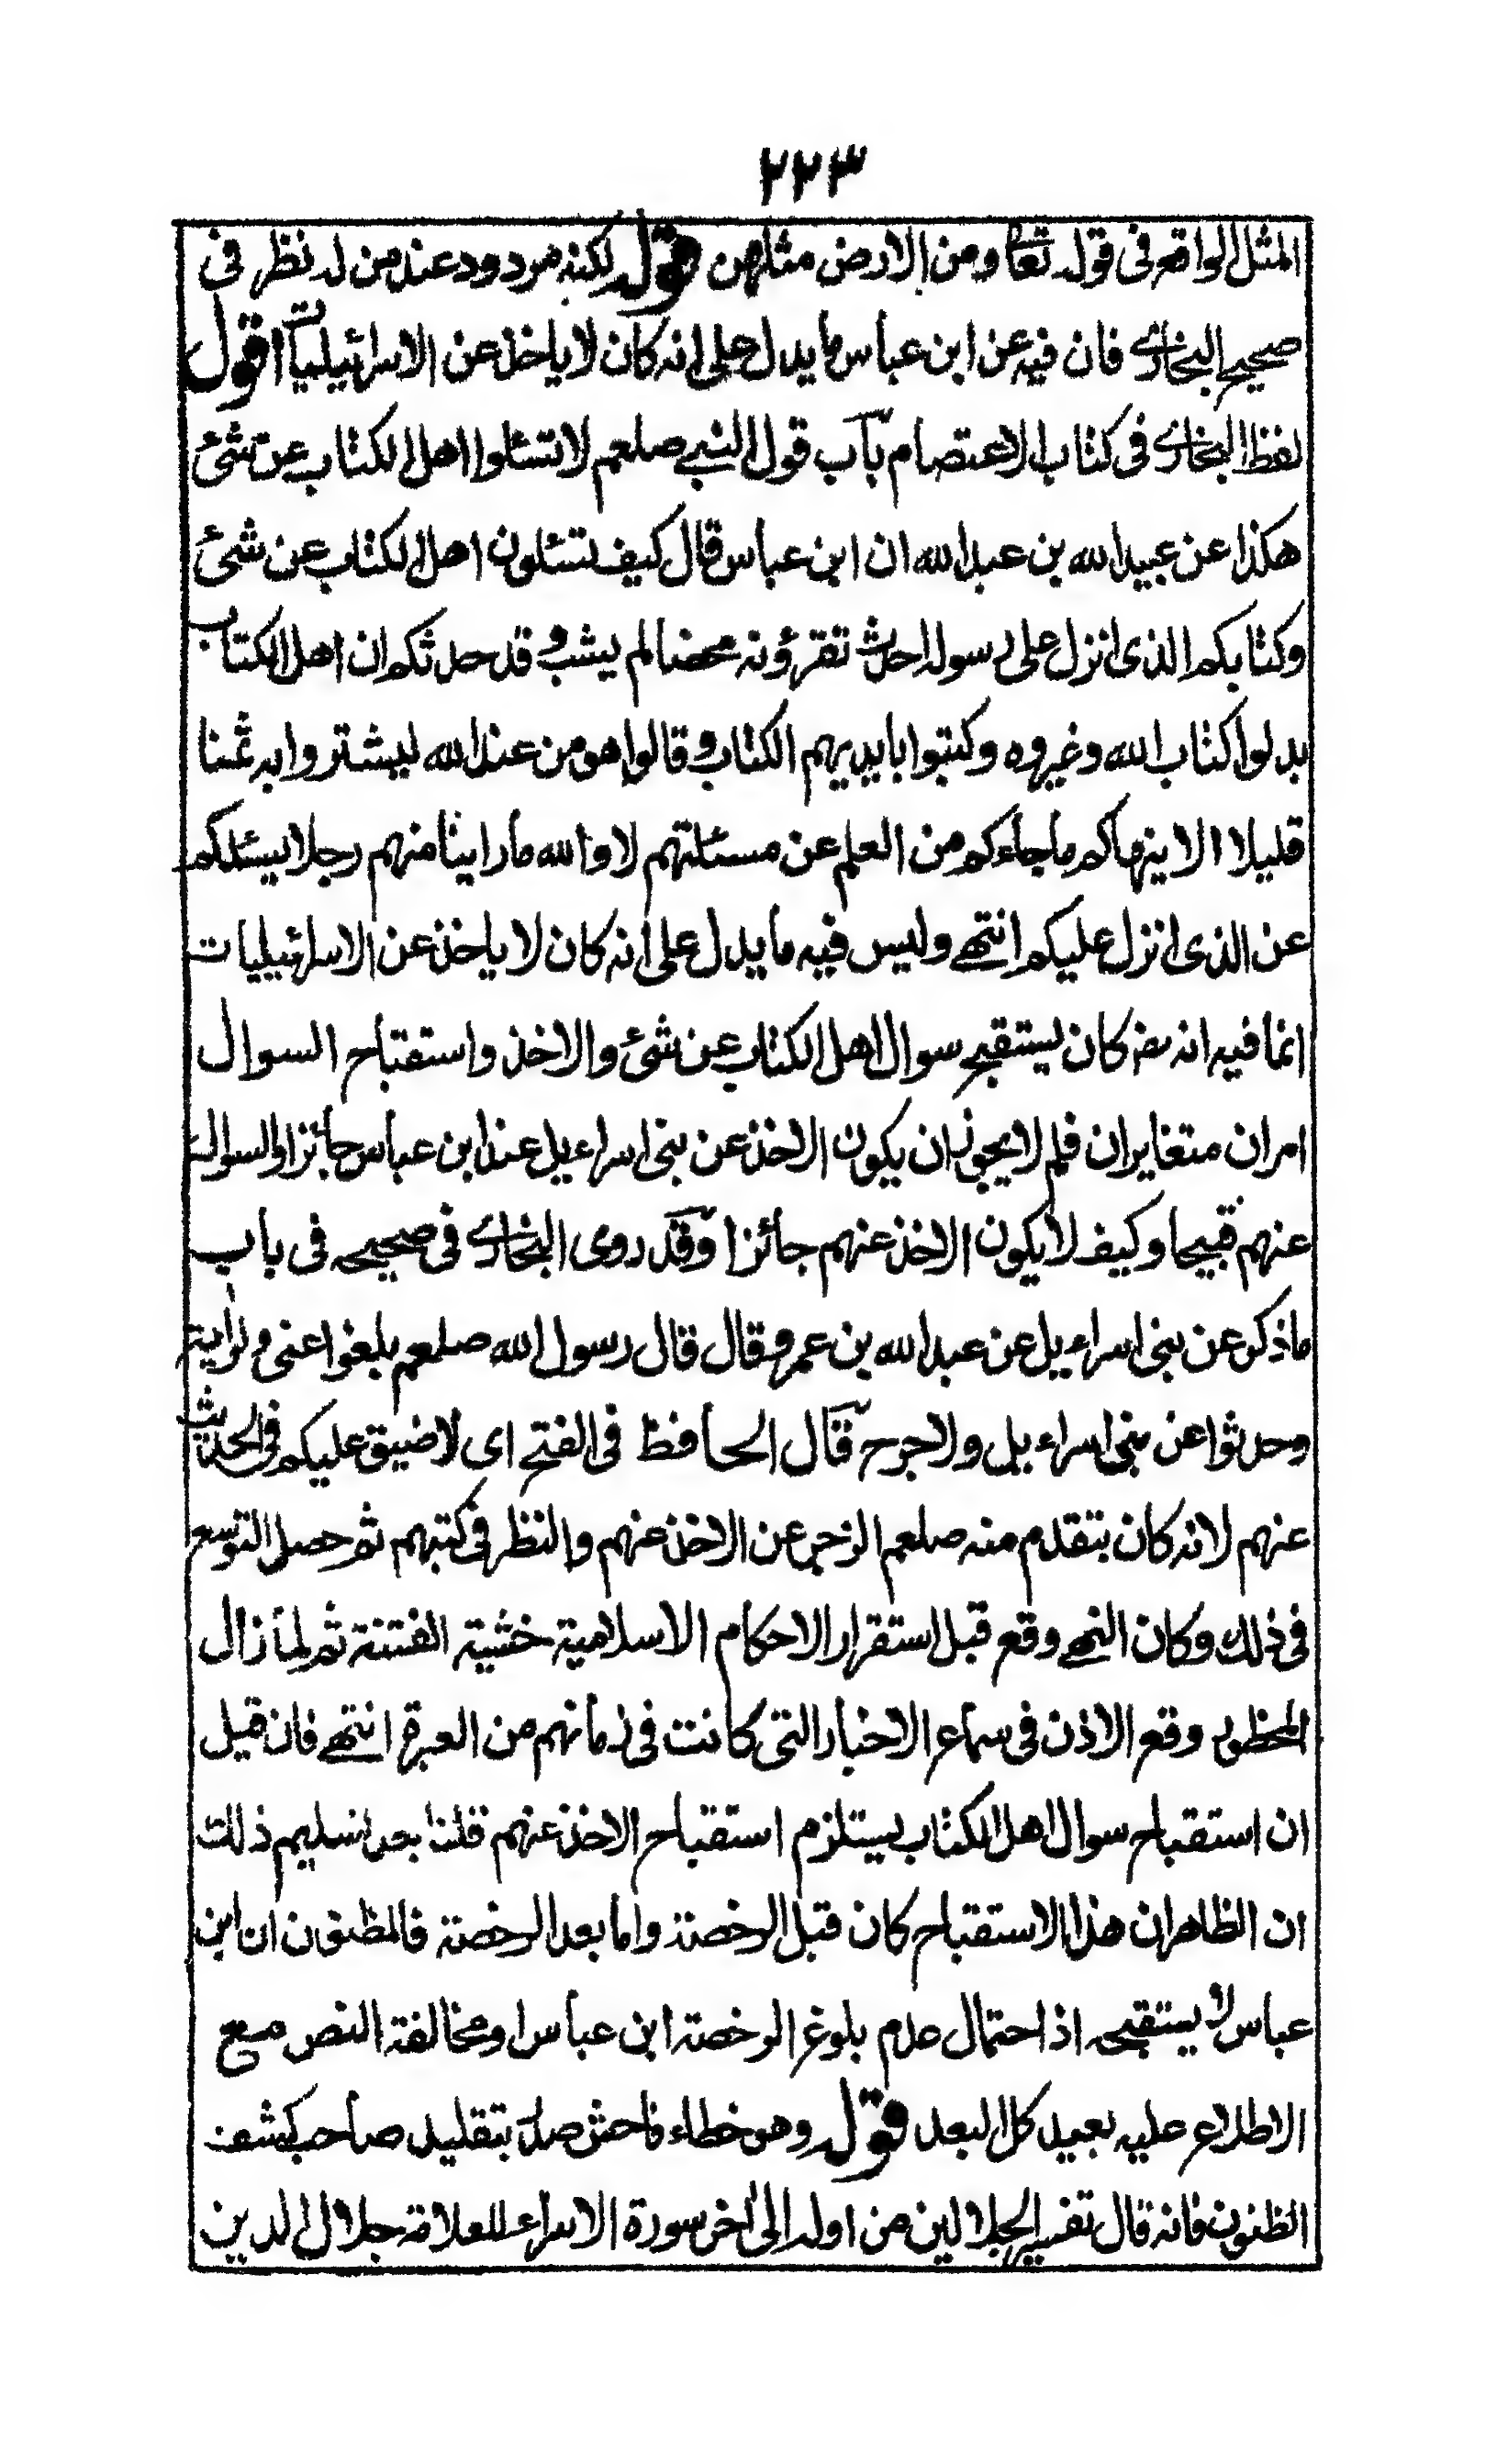 ٢٢٣
المثل الواقع فى قوله تعا ومن الارض مثلهن قوله لكنه مردود عند من له نظر فى
صحيح البخارى فان فيه عن ابن عباس ما يدل على انه كان لا ياخذ عن الاسرائيليات اقول
لفظ البخارى فى كتاب الاعتصام باب قول النبى صلعم لا تسئلوا اهل الكتاب عن شئ
هكذا عن عبيد الله بن عبد الله ان ابن عباس قال كيف تسئلون اهل الكتاب عن شئ
وكتابكم الذى انزل على رسوله احدث تقرؤنه محضا لم يشب وقد حدثكم ان اهل الكتاب
بدلوا كتاب الله وغيروه وكتبوا بايديهم الكتاب وقالوا هو من عند الله ليشتروا به ثمنا
قليلا الا ينهاكم ما جاءكم من العلم عن مسئلتهم لا والله ما راينا منهم رجلا يسئلكم
عن الذى انزل عليكم انتهى وليس فيه ما يدل على انه كان لا ياخذ عن الاسرائيليات
انما فيه انه رضه كان يستقبح سوال اهل الكتاب عن شئ والاخذ واستقباح السوال
امران متغايران فلم لا يجوز ان يكون الاخذ عن بنى اسراءيل عند ابن عباس جائزا والسوال
عنهم قبيحا وكيف لا يكون الاخذ عنهم جائزا وقد روى البخارى فى صحيحه فى باب
ما ذكر عن بنى اسراءيل عن عبد الله بن عمرو قال قال رسول الله صلعم بلغوا عنى ولو اية
وحدثوا عن بنى اسراءيل ولا حرج قال الحافظ فى الفتح اى لا ضيق عليكم فى الحديث
عنهم لانه كان تقدم منه صلعم الزجر عن الاخذ عنهم والنظر فى كتبهم ثم حصل التوسع
فى ذلك وكان النهى وقع قبل استقرار الاحكام الاسلامية خشية الفتنة ثم لما زال
المحظور وقع الاذن فى سماع الاخبار التى كانت فى زمانهم من العبرة انتهى فان قيل
ان استقباح سوال اهل الكتاب يستلزم استقباح الاخذ عنهم قلنا بعد تسليم ذلك
ان الظاهر ان هذا الاستقباح كان قبل الرخصة واما بعد الرخصة فالمظنون ان ابن
عباس لا يستقبحه اذ احتمال عدم بلوغ الرخصة ابن عباس او مخالفة النص مع
الاطلاع عليه بعيد كل البعد قوله وهو خطاء فاحش صدر بتقليد صاحب كشف
الظنون فانه قال تفسير الجلالين من اوله الى اخر سورة الاسراء للعلامة جلال الدين